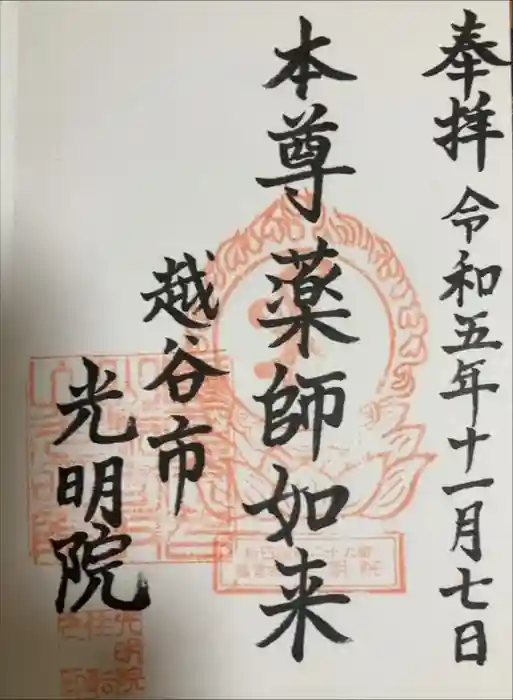 奉拝 令和五年十一月七日
本尊 薬師如来
越谷市
光明院